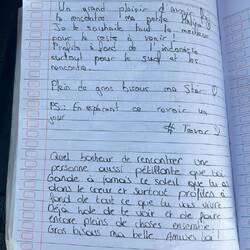 Un grand plaisir d'avoir
la rencontre ma petite
Je te souhaite tout le meilleur
pour le reste à venir !
Profite à fond de l'indonésie
surtout pour le surf et les
rencontre.
Plein de gros bisous ma Star ♡
PS: En espérant ce revoir un
jour
Quel bonheur de rencontrer une
personne aussi pétillante que toi
Garde à jamais ce soleil que tu as
dans le cœur et surtout profites à
fond de tout ce que tu vas vivre
Déjà hate de te voir et de faire
encore pleins de choses ensemble.
Gros bisous ma belle. Amuses toi